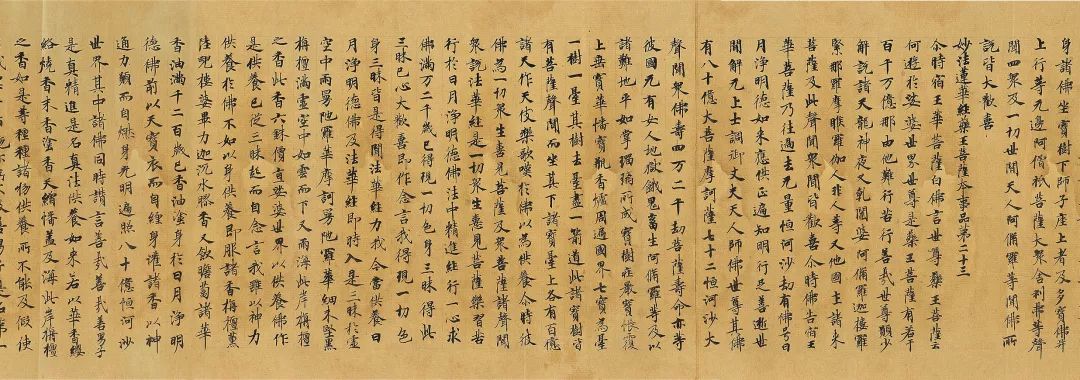 身諸佛坐寶樹下師子座上者及多寶佛并
上行等无邊阿僧祇菩薩大衆舍利弗等聲
聞四衆及一切世間天人阿脩羅等聞佛所
說皆大歡喜
妙法蓮華經藥王菩薩本事品第二十三
尒時宿王華菩薩白佛言世尊藥王菩薩云
何遊於娑婆世界世尊是藥王菩薩有若干
百千万億那由他難行苦行善哉世尊願少
解說諸天龍神夜叉乹闥婆阿脩羅迦樓羅
緊那羅摩睺羅伽人非人等又他國土諸來
菩薩及此聲聞衆聞皆歡喜尒時佛告宿王
華菩薩乃往過去无量恒河沙劫有佛号日
月淨明德如來應供正遍知明行足善逝世
間解无上士調御丈夫天人師佛世尊其佛
有八十億大菩薩摩訶薩七十二恒河沙大
聲聞衆佛壽四万二千劫菩薩壽命亦等
彼國无有女人地獄餓鬼畜生阿脩羅等及以
諸難地平如掌瑠璃所成寶樹莊嚴寶帳覆
上垂寶華幡寶瓶香爐周遍國界七寶爲臺
一樹一臺其樹去臺盡一箭道此諸寶樹皆
有菩薩聲聞而坐其下諸寶臺上各有百億
諸天作天伎樂歌嘆於佛以爲供養尒時彼
佛爲一切衆生憙見菩薩及衆菩薩諸聲聞
衆說法華經是一切衆生憙見菩薩樂習苦
行於日月淨明德佛法中精進經行一心求
佛滿万二千歲已得現一切色身三昧得此
三昧已心大歡喜即作念言我得現一切色
身三昧皆是得聞法華經力我今當供養日
月淨明德佛及法華經即時入是三昧於虛
空中雨曼陁羅華摩訶曼陁羅華細末堅黑
栴檀滿虛空中如雲而下又雨海此岸栴檀
之香此香六銖價直娑婆世界以供養佛作
是供養已從三昧起而自念言我雖以神力
供養於佛不如以身供養即服諸香栴檀薰
陸兜樓婆畢力迦沉水膠香又飲瞻蔔諸華
香油滿千二百歲已香油塗身於日月淨明
德佛前以天寶衣而自纏身灌諸香油以神
通力願而自燃身光明遍照八十億恒河沙
世界其中諸佛同時讚言善哉善哉善男子
是真精進是名真法供養如來若以華香瓔
珞燒香末香塗香天繒幡蓋及海此岸栴檀
之香如是等種種諸物供養所不能及假使